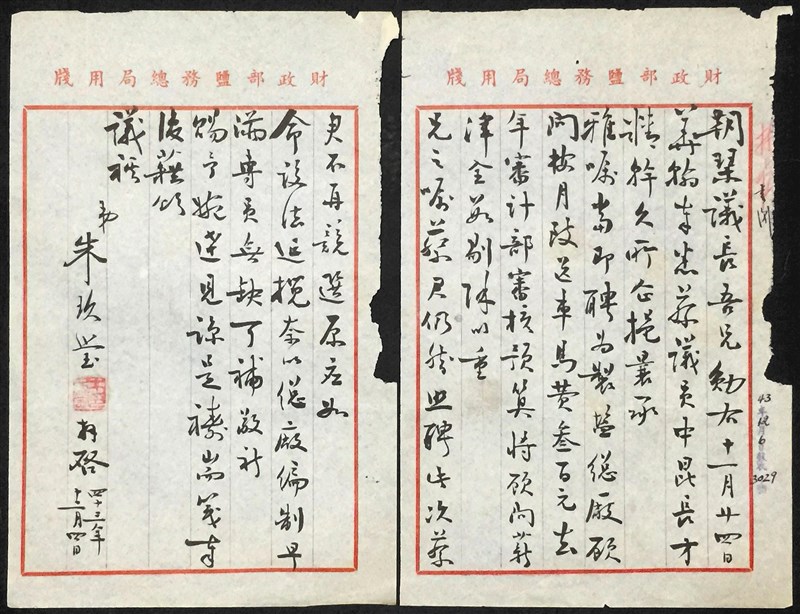 財政部鹽務總局用牋
朝琴議長吾兄勛右十一月廿四日
華翰奉悉蔡議員中昆長才
精幹久所企挹曩承
雅囑當即聘為製鹽總廠顧
問按月致送車馬費叁百元去
年審計部審核預算將顧問薪
津全數剔除以重
兄之囑蔡君仍然照聘此次蔡
43年12月6日
3029
財政部鹽務總局用牋
君不再競選原應如
命設法延攬奈以總廠編制早
滿專員無缺可補敬祈
賜予婉達見諒是禱耑箋奉
復藉頌
議祺
弟朱玖瑩
拜啓
四十三年
十二月四日